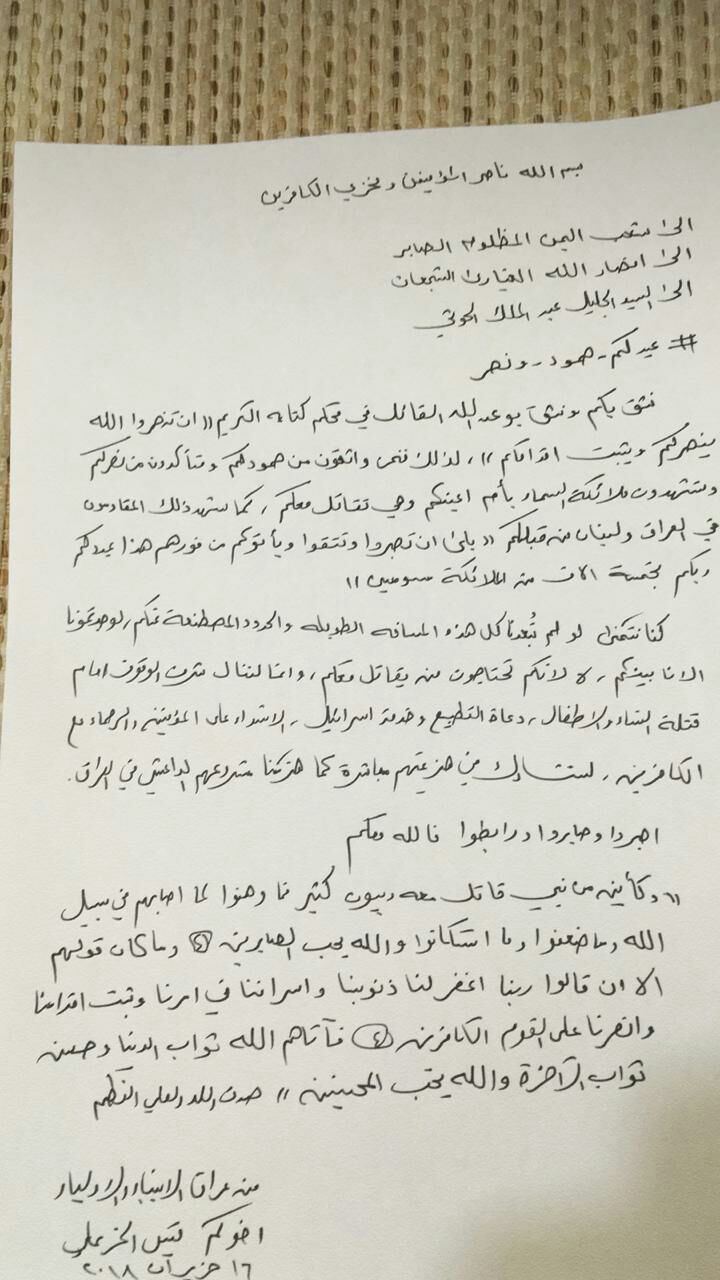 بسم الله ناصر المؤمنين ومخزي الكافرين
الى شعب اليمن المظلوم الصابر
الى انصار الله الغيارى الشجعان
الى السيد الجليل عبد الملك الحوثي
# عيدكم_صمود_ونصر
نثق بكم ونثق بوعد الله القائل في محكم كتابه الكريم "ان تنصروا الله
ينصركم ويثبت اقدامكم"، لذلك فنحن واثقون من صمودكم ومتأكدون من نصركم
وستشهدون ملائكة السماء بأم اعينكم وهي تقاتل معكم، كما شهد ذلك المقاومون
في العراق ولبنان من قبلكم "بلى ان تصبروا وتتقوا ويأتوكم من فورهم هذا يمددكم
ربكم بخمسة الاف من الملائكة مسومين"
كنا نتمنى لو لم تُبعدنا كل هذه المسافة الطويلة والحدود المصطنعة عنكم، لوجدتمونا
الان بينكم، لا لانكم تحتاجون من يقاتل معكم، وانما لننال شرف الوقوف امام
قتلة النساء والاطفال، دعاة التطبيع وخدمة اسرائيل، الاشداء على المؤمنين والرحماء مع
الكافرين، لنتشارك في هزيمتهم مباشرة كما هزمنا مشروعهم الداعشي في العراق.
اصبروا وصابروا ورابطوا فالله معكم
"وكأين من نبي قاتل معه ربيون كثير فما وهنوا لما اصابهم في سبيل
الله وما ضعفوا وما استكانوا والله يحب الصابرين وما كان قولهم
الا ان قالوا ربنا اغفر لنا ذنوبنا واسرافنا في امرنا وثبت اقدامنا
وانصرنا على القوم الكافرين فآتاهم الله ثواب الدنيا وحسن
ثواب الآخرة والله يحب المحسنين" صدق الله العلي العظيم
من عراق الانبياء والاولياء
اخوكم قيس الخزعلي
١٦ حزيران ٢٠١٨